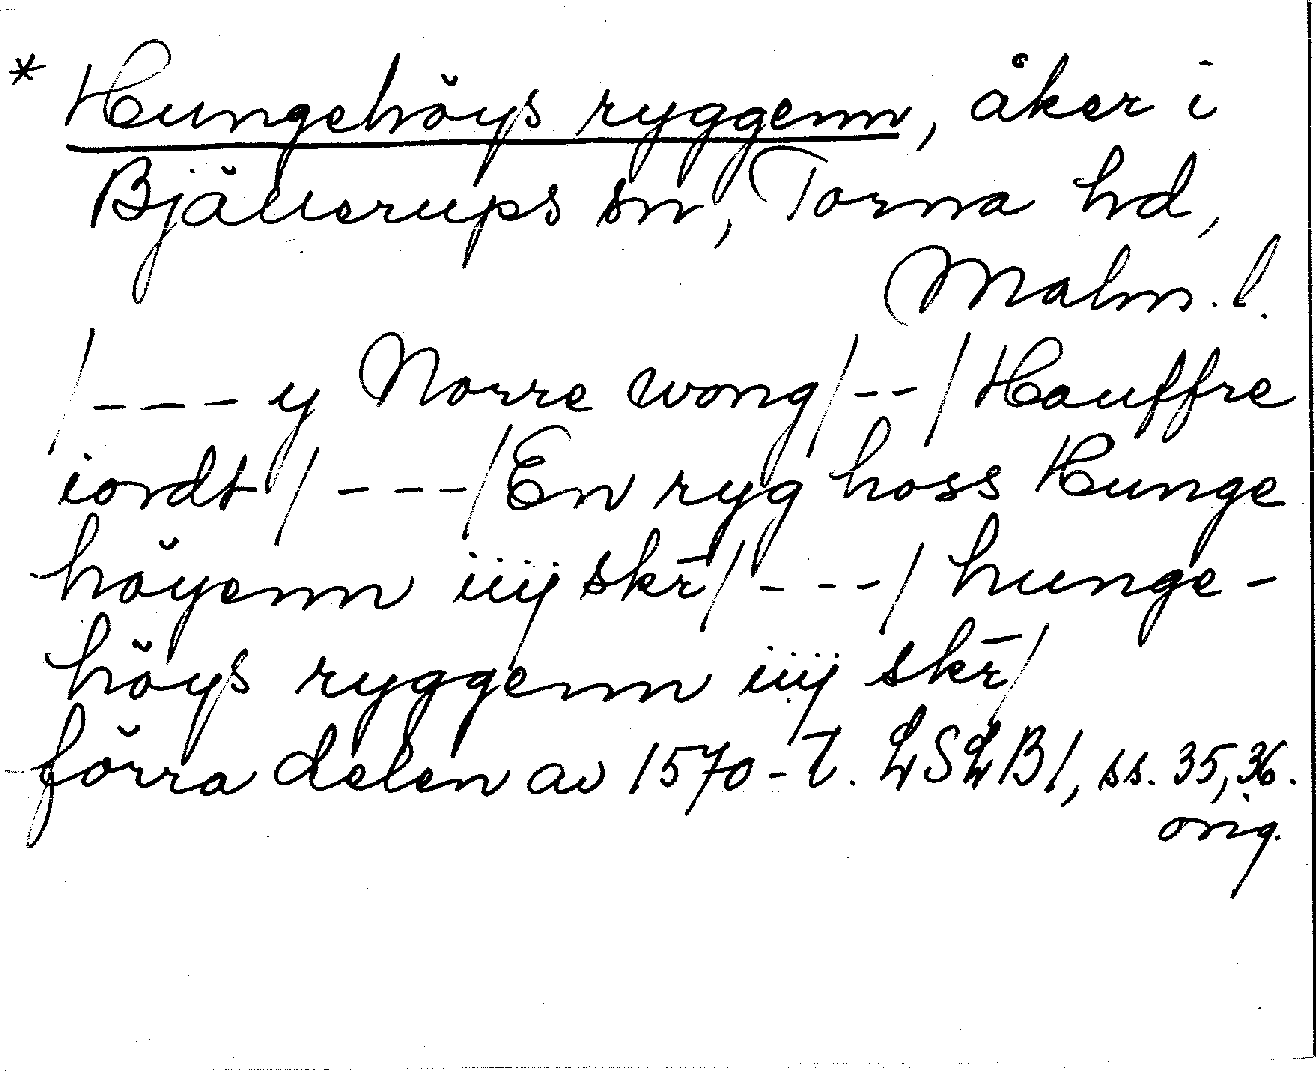 * Hungehöys ryggenn, åker i
Bjällerups sn, Torna hd,
Malm. l.
/---y Norre wong/--/Hauffre
iordt/---/En ryg hoss Hunge
höyenn iiij skr̄/---/hunge-
höys ryggenn iiij skr̄/
förra delen av 1570-t. LSLB1, ss. 35,36.
orig.